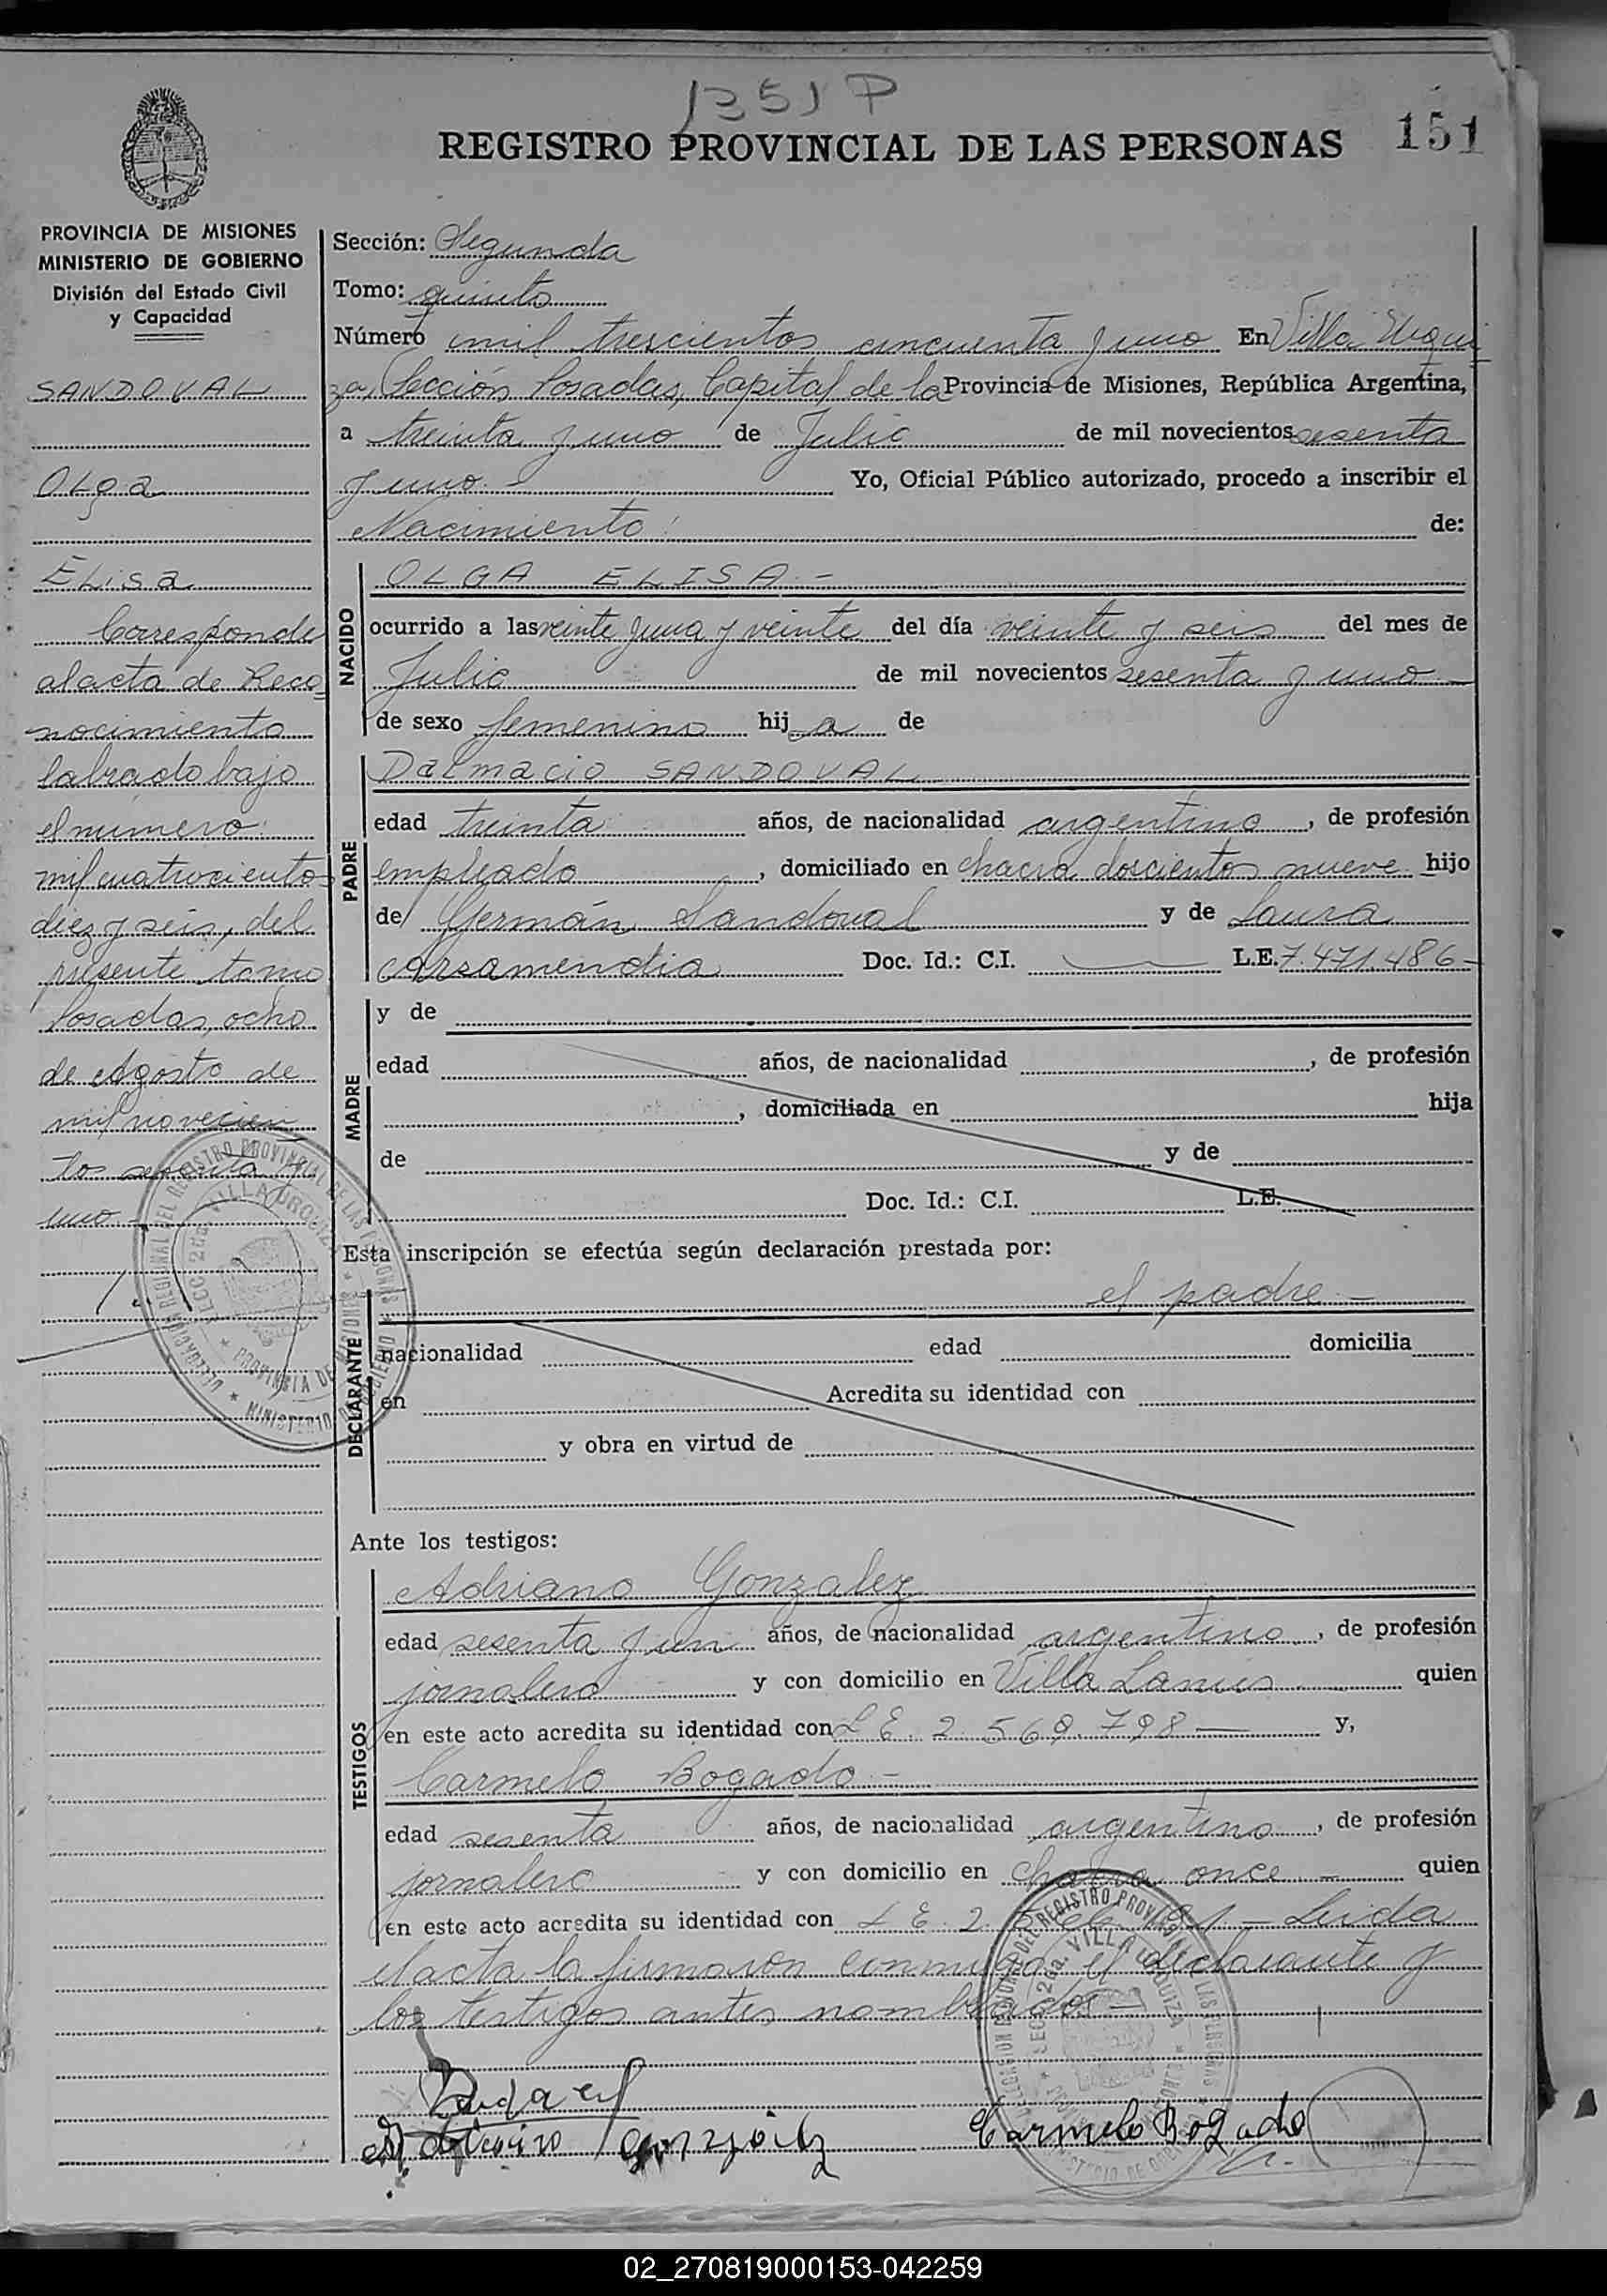 1351 P
REGISTRO PROVINCIAL DE LAS PERSONAS 151
PROVINCIA DE MISIONES
MINISTERIO DE GOBIERNO
División del Estado Civil
y Capacidad
SANDOVAL
Olga
Elisa
Corresponde
al acta de Reco
nocimiento
labrado bajo
el número
mil cuatrocientos
diez y seis, del
presente tomo
Posadas, ocho
de Agosto de
mil novecien
tos sesenta y
uno
Sección: Segunda
Tomo: quinto
Número mil trescientos cincuenta y uno En Villa Urqui
za, Sección Posadas, Capital de la Provincia de Misiones, República Argentina,
a treinta y uno de Julio de mil novecientos sesenta
y uno.- Yo, Oficial Público autorizado, procedo a inscribir el
Nacimiento: de:
NACIDO
OLGA ELISA.-
ocurrido a las veinte y una y veinte del día veinte y seis del mes de
Julio de mil novecientos sesenta y uno -
de sexo femenino hij a de
PADRE
Dalmacio SANDOVAL
edad treinta años, de nacionalidad argentino, de profesión
empleado, domiciliado en chacra doscientos nueve hijo
de Germán Sandoval y de Laura
Doc. Id.: C.I. L.E. 7.471.486-
MADRE
y de
edad años, de nacionalidad , de profesión
, domiciliada en hija
de y de
Doc. Id.: C.I. L.E.
Esta inscripción se efectúa según declaración prestada por:
el padre -
DECLARANTE
nacionalidad edad domicilia
en Acredita su identidad con
y obra en virtud de
Ante los testigos:
TESTIGOS
Adriano Gonzalez
edad sesenta y un años, de nacionalidad argentino, de profesión
jornalero y con domicilio en Villa Lanus quien
en este acto acredita su identidad con L E. 2.569.798 — y,
Carmelo Bogado -
edad sesenta años, de nacionalidad argentino, de profesión
jornalero y con domicilio en Chacra once - quien
en este acto acredita su identidad con L E. 2. - Leida
el acta la firmaron conmigo el declarante y
los testigos antes nombrados -
Gonzalez Carmelo Bogado
02_270819000153-042259